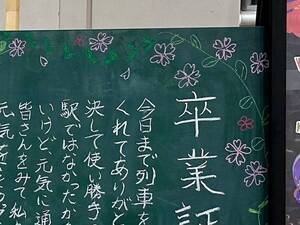 卒業証
今日まで列車を
くれてありがと
決して使い勝手
駅ではなかったか
いけど、元気に通
皆さんをみて私
元気をもら